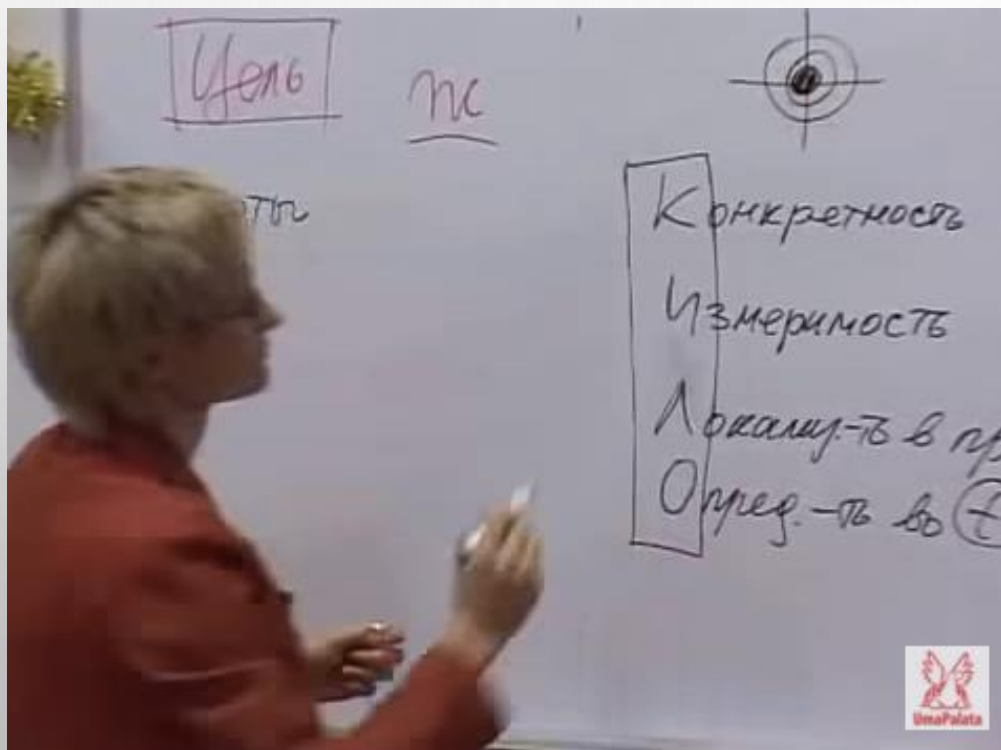 Цель
ПС
Конкретность
Измеримость
Локализ.-ть в пр
Опред.-ть во t
UmaPalata